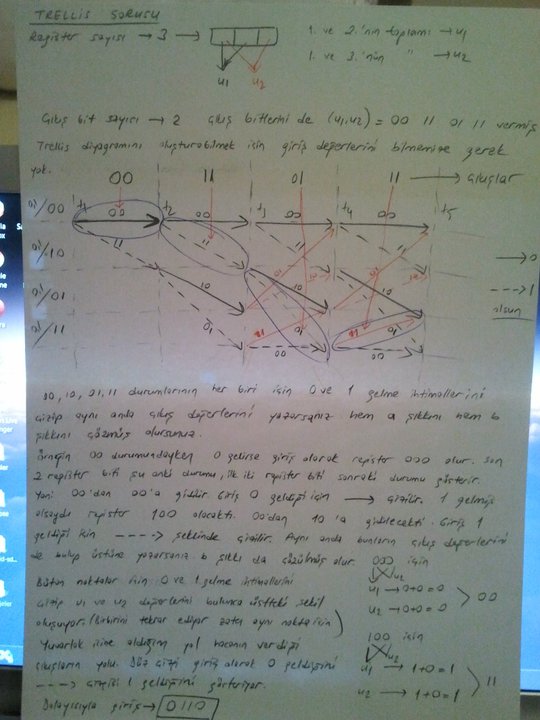 TRELLIS SORUSU
Register sayısı → 3 →
1. ve 2.'nin toplamı → u1
1. ve 3.'nün " → u2
u1 u2
Çıkış bit sayısı → 2 çıkış bitlerini de (u1,u2) = 00 11 01 11 vermiş
Trellis diyagramını oluşturabilmek için giriş değerlerini bilmemize gerek
yok.
00 11 01 11 → çıkışlar
0/1/00 t1 00 t2 00 t3 00 t4 00 t5
11 11 11 11
0/1/10
→ 0
10 10 10
0/1/01
---> 1
olsun
01 01
0/1/11
00 00
00, 10, 01, 11 durumlarının her biri için 0 ve 1 gelme ihtimallerini
çizip aynı anda çıkış değerlerini yazarsanız hem a şıkkını hem b
şıkkını çözmüş olursunuz.
Örneğin 00 durumundayken 0 gelirse giriş olarak repister 000 olur. son
2 repister biti şu anki durumu, ilk iki repister biti sonraki durumu gösterir.
Yani 00'dan 00'a gidilir. Giriş 0 geldiği için → çizilir. 1 gelmiş
olsaydı repister 100 olacaktı. 00'dan 10'a gidilecekti. Giriş 1
geldiği için ----> şeklinde çizilir. Aynı anda bunların çıkış değerlerini
de bulup üstüne yazarsanız b şıkkı da çözülmüş olur.
000 için
u1 u2
Bütün noktalar için 0 ve 1 gelme ihtimallerini
u1 → 0+0=0
u2 → 0+0=0
> 00
çizip u1 ve u2 değerlerini bulunca üstteki şekil
oluşuyor. (birbirini tekrar ediyor zaten aynı nokta için)
Yuvarlak içine aldığım yol hocanın verdiği
100 için
u1 u2
çıkışların yolu. Düz çizgi giriş olarak 0 geldiğini
u1 → 1+0=1
----> çizgisi 1 geldiğini gösteriyor.
u2 → 1+0=1
> 11
Dolayısıyla giriş → 0110